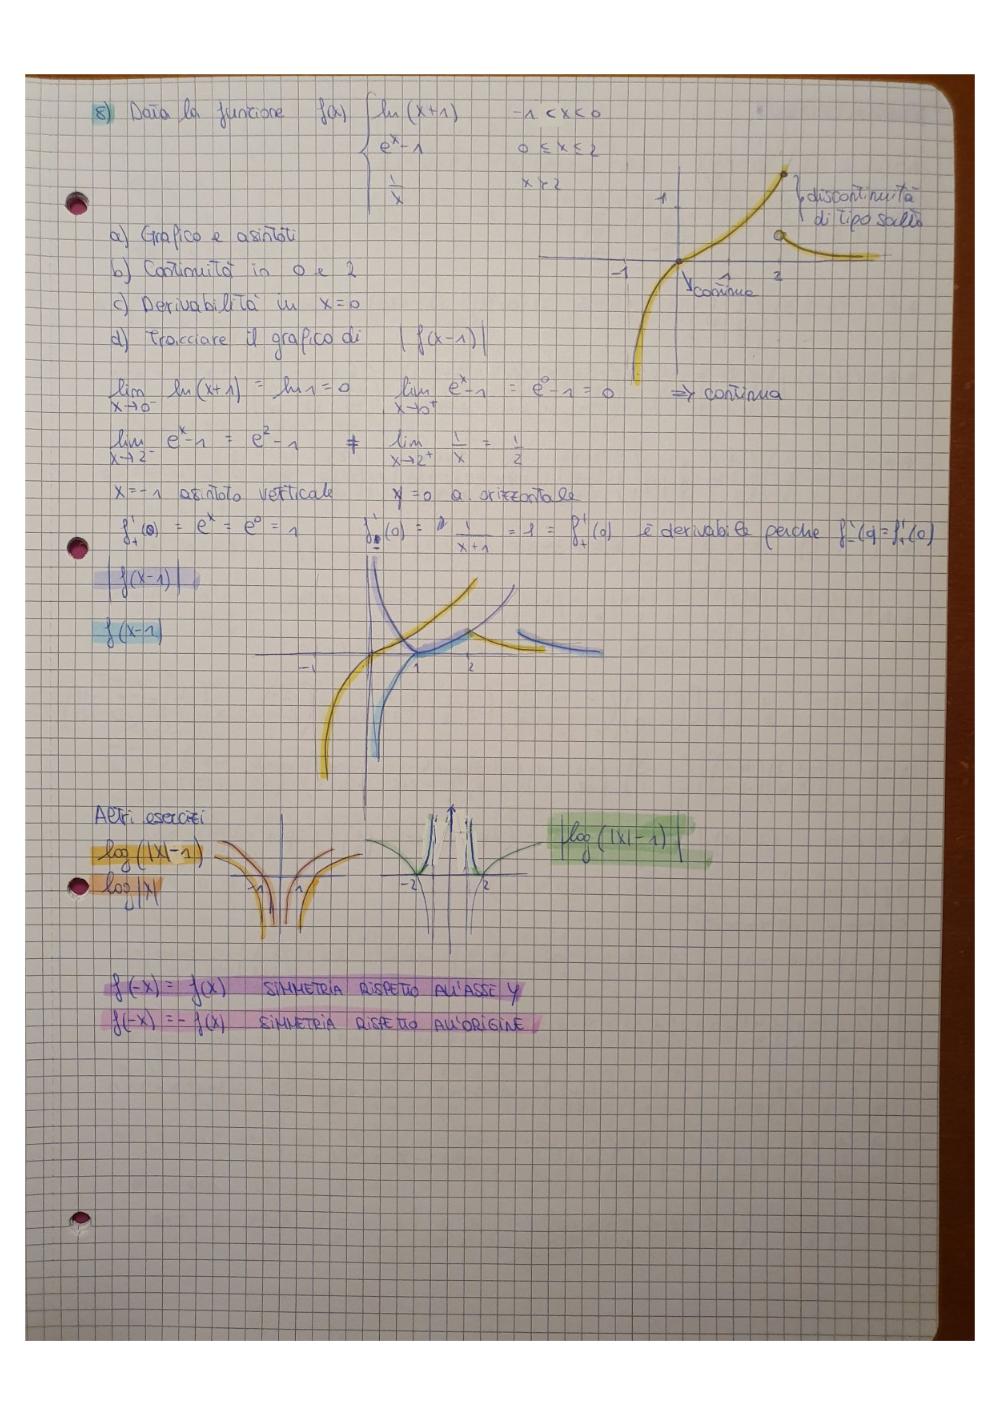 8) Data la funzione f(x) { ln(x+1) -1<x<0
e^x-1 0≤x≤2
1/x x>2
1
discontinuità
di tipo salto
-1 1 2
continua
a) Grafico e asintoti
b) Continuità in 0 e 2
c) Derivabilità in x=0
d) Tracciare il grafico di |f(x-1)|
lim x→0⁻ ln(x+1) = ln1=0 lim x→0⁺ e^x-1 = e^0-1=0 ⇒ continua
lim x→2⁻ e^x-1 = e^2-1 ≠ lim x→2⁺ 1/x = 1/2
x=-1 asintoto verticale y=0 a. orizzontale
f'₊(0) = e^x = e^0 = 1 f'₋(0) = 1/(x+1) = 1 = f'₊(0) è derivabile perche f'₋(0)=f'₊(0)
|f(x-1)|
f(x-1)
-1 1 2
Altri esercizi
log(|x|-1)
log|x|
-1 1
-2 2
|log(|x|-1)|
f(-x) = f(x) SIMMETRIA RISPETTO ALL'ASSE Y
f(-x) = -f(x) SIMMETRIA RISPETTO ALL'ORIGINE